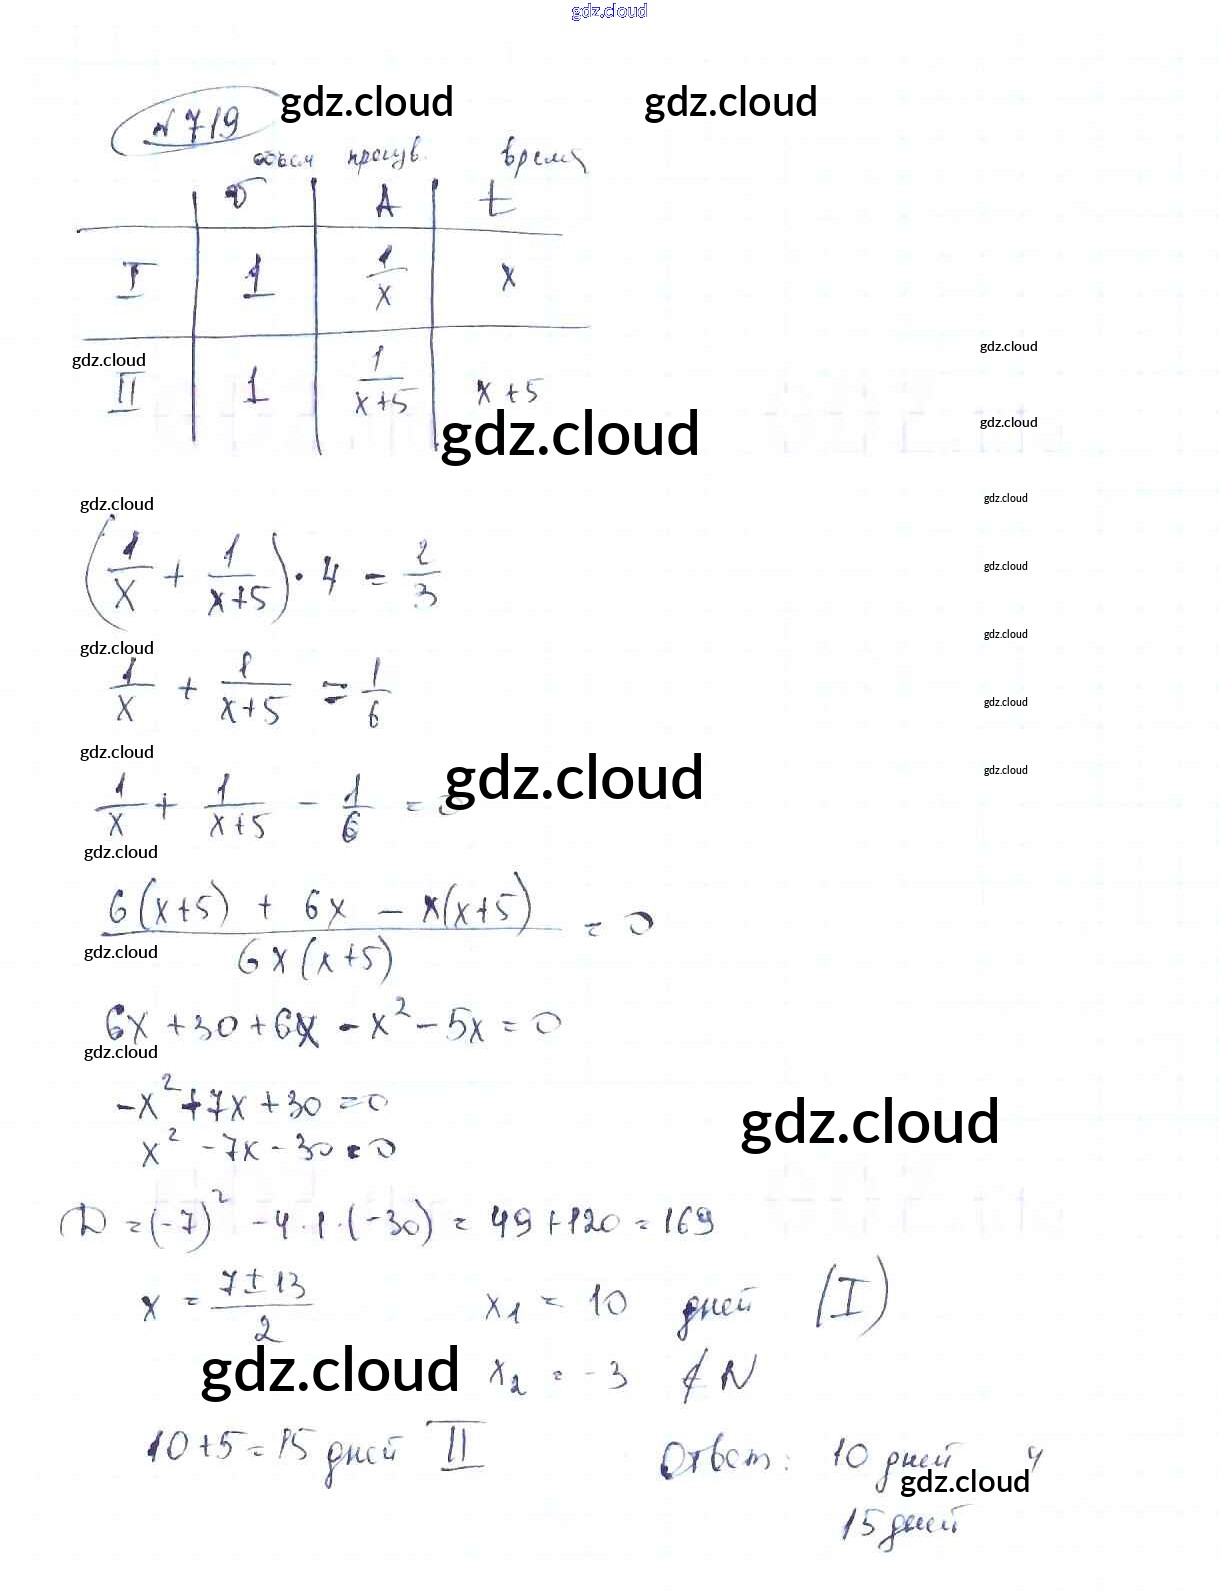 gdz.cloud
№ 719 gdz.cloud gdz.cloud
объем произв. время
v A t
I 1 1/x x
gdz.cloud gdz.cloud
II 1 1/(x+5) x+5
gdz.cloud gdz.cloud
gdz.cloud gdz.cloud
(1/x + 1/(x+5)) · 4 = 2/3 gdz.cloud
gdz.cloud gdz.cloud
1/x + 1/(x+5) = 1/6 gdz.cloud
gdz.cloud gdz.cloud gdz.cloud
1/x + 1/(x+5) - 1/6 = 0
gdz.cloud
(6(x+5) + 6x - x(x+5))/(6x(x+5)) = 0
gdz.cloud
6x + 30 + 6x - x² - 5x = 0
gdz.cloud
-x² + 7x + 30 = 0
gdz.cloud
x² - 7x - 30 = 0
D = (-7)² - 4·1·(-30) = 49 + 120 = 169
x = (7 ± 13)/2 x₁ = 10 дней (I)
gdz.cloud x₂ = -3 ∉ N
10 + 5 = 15 дней II Ответ: 10 дней и
gdz.cloud
15 дней